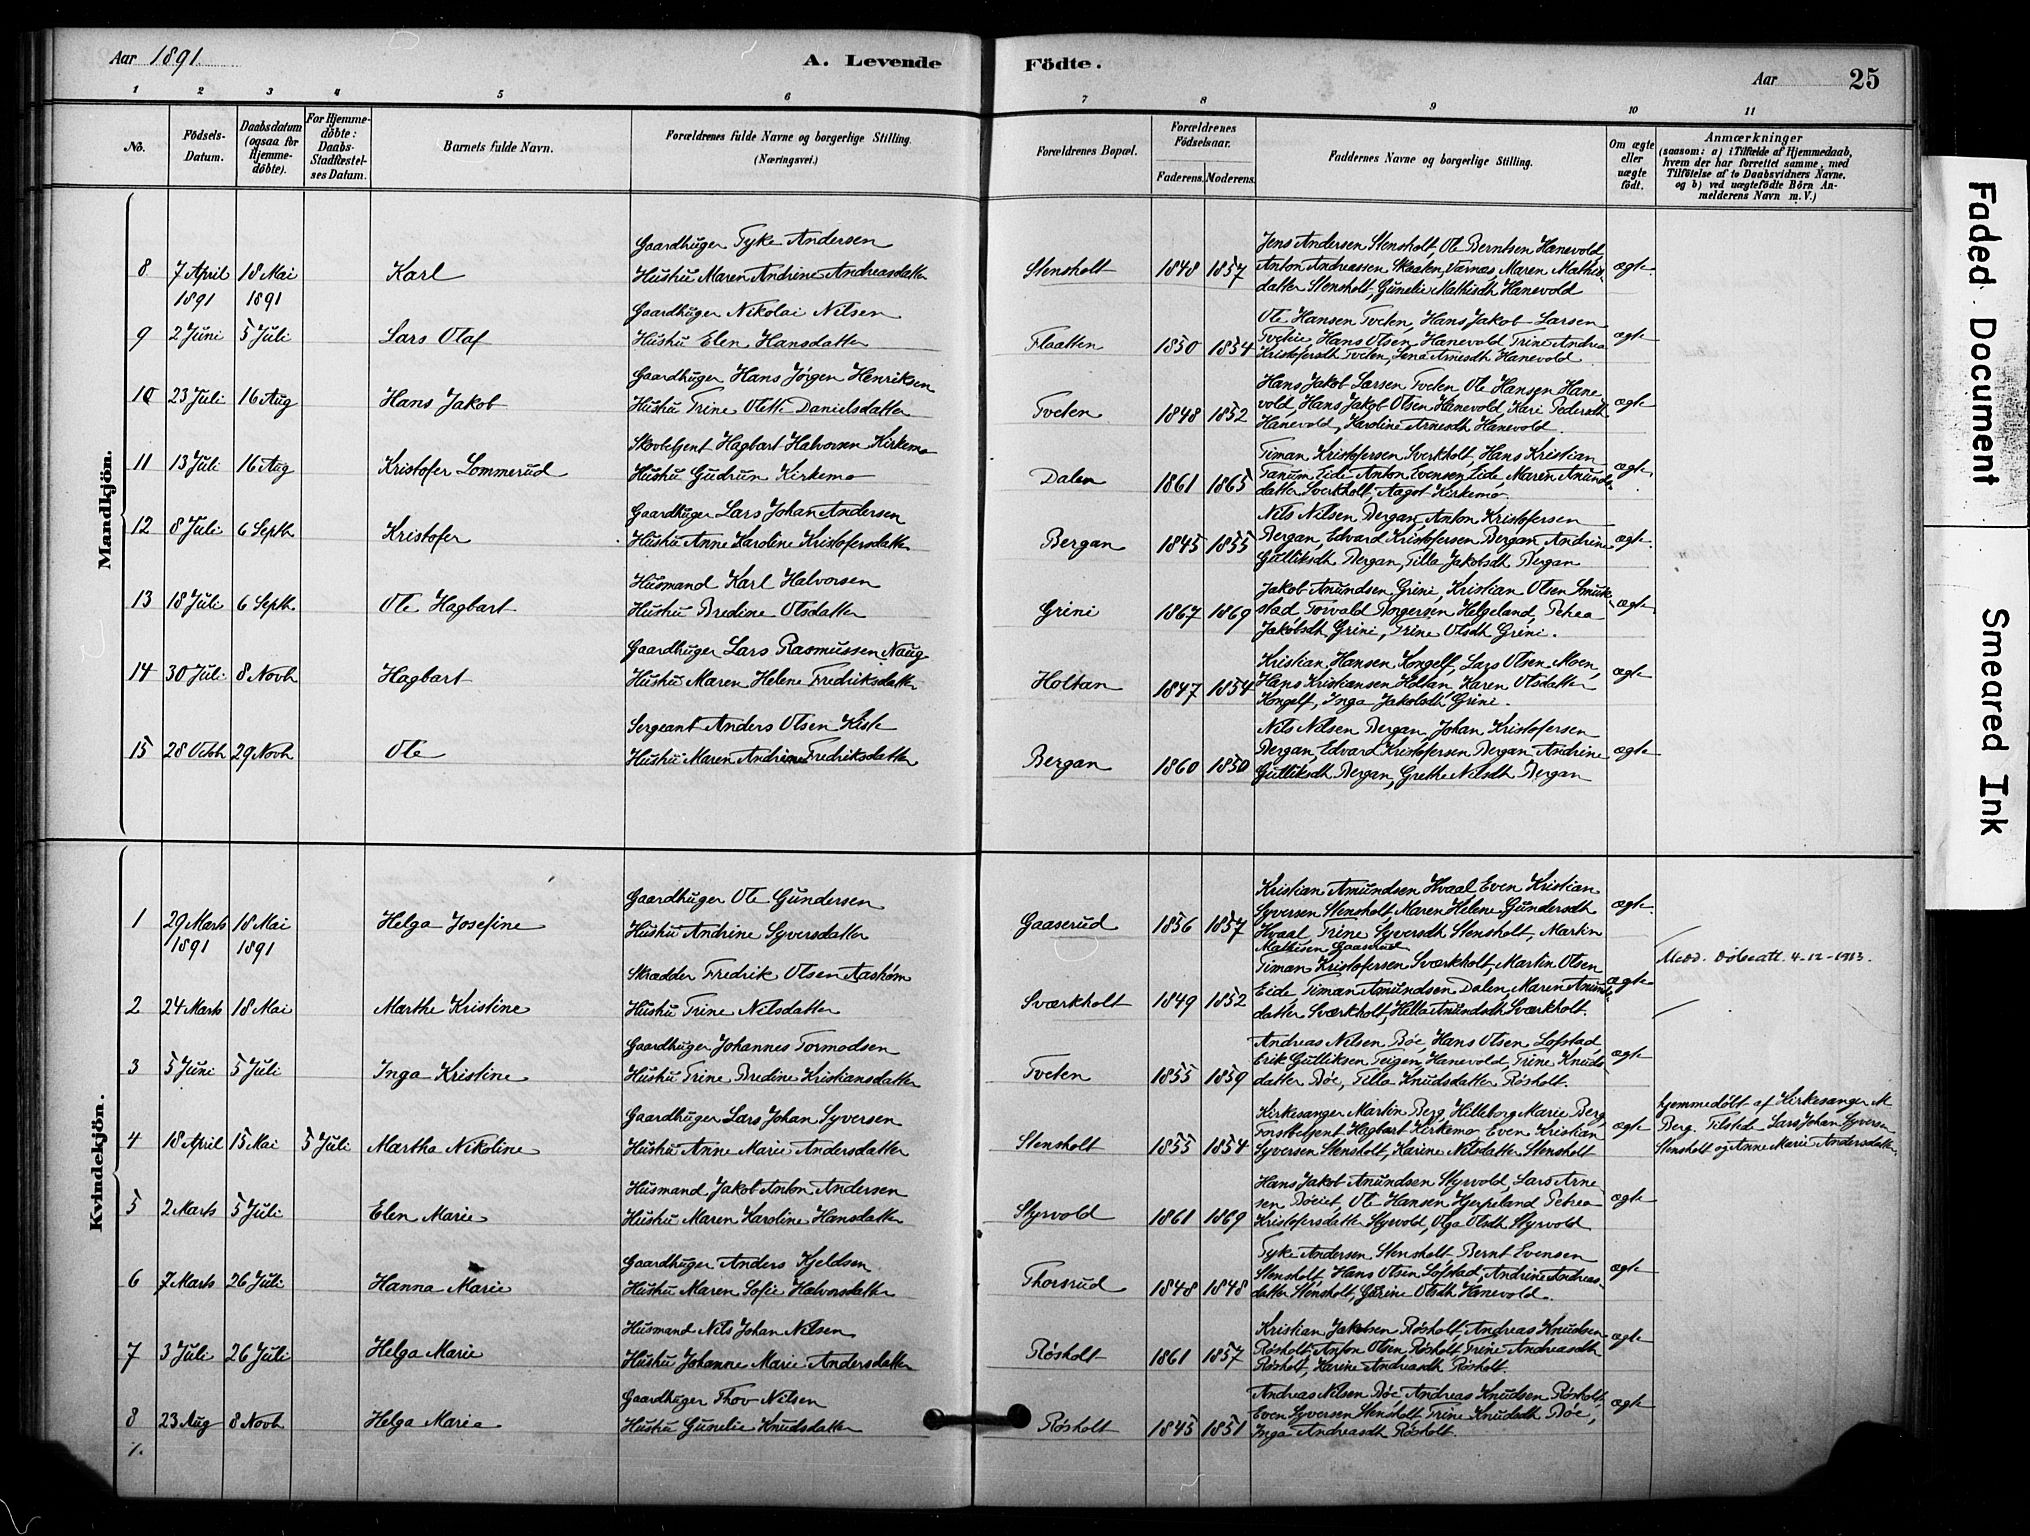 Aar 1891. A. Levende Födte. Aar 25
1 2 3 4 5 6 7 8 9 10 11
No.
Födsels-Datum.
Daabsdatum (ogsaa for Hjemmedöbte).
For Hjemmedöbte: Daabs-Stadfæstelses Datum.
Barnets fulde Navn.
Forældrenes fulde Navne og borgerlige Stilling. (Næringsvei.)
Forældrenes Bopæl.
Forældrenes Födselsaar.
Faderens. Moderens.
Faddernes Navne og borgerlige Stilling.
Om ægte eller uægte födt.
Anmærkninger
(saasom: a) i Tilfælde af Hjemmedaab,
hvem der har forrettet samme, med
Tilföielse af to Daabsvidners Navne,
og b) ved uægtefödte Börn Anmelderens Navn m. V.)
Mandkjön.
8 7 April 1891 18 Mai 1891 Karl
Gaardbruger Tyke Andersen
Hustru Maren Andrine Andreasdatter
Stensholt 1848 1857
Jens Andersen Stensholt, Ole Berntsen Hanevold,
Anton Andreassen Skaaten, Varnæs, Maren Mathis-
datter Stensholt, Gunelie Mathisdtr Hanevold
ægte
9 2 Juni 5 Juli Lars Olaf
Gaardbruger Nikolai Nilsen
Hustru Elen Hansdatter
Flaatten 1850 1854
Ole Hansen Tveten, Hans Jakob Larsen
Hans Olsen Hanevold Trine Andrea
Kristofersdtr Tveten, Lena Arnesdtr Hanevold
ægte
10 23 Juli 16 Aug Hans Jakob
Gaardbruger Hans Jørgen Henriksen
Hustru Trine Olette Danielsdatter
Tveten 1848 1852
Hans Jakob Larsen Tveten Ole Hansen Hane
vold, Hans Jakob Olsen Hanevold Kari Pedersdtr
Hanevold, Karoline Arnesdtr Hanevold.
ægte
11 13 Juli 16 Aug Kristofer Lommerud
Skovbetjent Hagbart Halvorsen Kirkemo
Hustru Gudrun Kirkemo
Dalen 1861 1865
Timan Kristofersen Sverkholt, Hans Kristian
Tanum Eide Anton Evensen Eide, Maren Amunds-
datter Sverkholt, Aagot Kirkemo
ægte
12 8 Juli 6 Septb Kristofer
Gaardbruger Lars Johan Andersen
Hustru Anne Karoline Kristofersdatter
Bergan 1845 1855
Nils Nilsen Bergan, Anton Kristofersen
Bergan, Edvard Kristofersen Bergan Andrine
Gulliksdtr Bergan, Tilla Jakobsdtr Bergan
ægte
13 18 Juli 6 Septb Ole Hagbart
Husmand Karl Halvorsen
Hustru Bredine Olsdatter
Grini 1867 1869
Jakob Amundsen Grini, Kristian Olsen
stad, Torvald Borgersen Helgeland, Petrea
Jakobsdtr Grini, Trine Olsdtr Grini.
ægte
14 30 Juli 8 Novb Hagbart
Gaardbruger Lars Rasmussen Naug
Hustru Maren Helene Fredriksdatter
Holtan 1847 1854
Kristian Hansen Kongelf, Lars Olsen Moen,
Hans Kristiansen Holtan, Karen Olsdatter
Kongelf, Inga Jakobsdtr Grini.
ægte
15 28 Octb 29 Novb Ole
Sergeant Anders Olsen Kiste
Hustru Maren Andrine Fredriksdatter
Bergan 1860 1850
Nils Nilsen Bergan, Johan Kristofersen
Bergan, Edvard Kristofersen Bergan Andrine
Gulliksdtr Bergan, Grethe Nilsdtr Bergan
ægte
Kvindekjön.
1 29 Marts 1891 18 Mai 1891 Helga Josefine
Gaardbruger Ole Gundersen
Hustru Andrine Syversdatter
Gaaserud 1856 1857
Kristian Amundsen Hvaal Even Kristian
Syversen Stensholt, Maren Helene Gundersdtr
Hvaal Trine Syversdtr Stensholt, Martin
Mathisen Gaaserud
ægte
Medd. døbeatt. 4-12-1913.
2 24 Marts 18 Mai Marthe Kristine
Skrædder Fredrik Olsen
Hustru Trine Nilsdatter
Sværkholt 1849 1852
Timan Kristofersen Sværkholt, Martin Olsen
Eide, Timan Amundsen Dalen, Maren Amunds-
datter Sværkholt, Helle Amundsdtr Sværkholt.
ægte
3 5 Juni 5 Juli Inga Kristine
Gaardbruger Johannes Tormodsen
Hustru Trine Bredine Kristiansdatter
Tveten 1855 1859
Andreas Nilsen Bøe, Hans Olsen Lofstad
Erik Gulliksen Teigen, Hanevold, Trine Knuds-
datter Bøe, Tilla Knudsdatter Røsholt.
ægte
4 18 April 15 Mai 5 Juli Martha Nikoline
Gaardbruger Lars Johan Syversen
Hustru Anne Marie Andersdatter
Stensholt 1855 1854
Kirkesanger Martin Berg, Hilleborg Marie Berg,
Forstbetjent Hagbart Kirkemo Even Kristian
Syversen Stensholt, Karine Nilsdatter Stensholt
ægte
hjemmedöbt af Kirkesanger M
Berg. Tilsted. Lars Johan Syversen
Stensholt og Anne Marie Andersdatter.
5 2 Marts 5 Juli Elen Marie
Husmand Jakob Anton Andersen
Hustru Maren Karoline Hansdatter
Styrvold 1861 1869
Hans Jakob Amundsen Styrvold, Lars Arne
sen Bøeiet, Ole Hansen Hjerpeland Petrea
Kristofersdatter Styrvold, Olga Olsdtr Styrvold
ægte
6 7 Marts 26 Juli Hanna Marie
Gaardbruger Anders Kjeldsen
Hustru Maren Sofie Halvorsdatter
Thorsrud 1848 1848
Tyke Andersen Stensholt Bernt Evensen
Stensholt, Hans Olsen Lofstad, Andrine Andreas-
datter Stensholt, Gurine Olsdtr Hanevold.
ægte
7 3 Juli 26 Juli Helga Marie
Husmand Nils Johan Nilsen
Hustru Johanne Marie Andersdatter
Røsholt 1861 1857
Kristian Jakobsen Røsholt, Andreas Knudsen
Røsholt, Anton Olsen Røsholt, Trine Andreasdtr
Røsholt, Karine Andreasdtr Røsholt
ægte
8 23 Aug 8 Novb Helga Maria
Gaardbruger Thov Nilsen
Hustru Gunelie Knudsdatter
Røsholt 1845 1851
Andreas Nilsen Bøe Andreas Knudsen Røsholt,
Even Syversen Stensholt Trine Knudsdtr Bøe,
Inga Andreasdtr Røsholt.
ægte
Faded Document
Smeared Ink